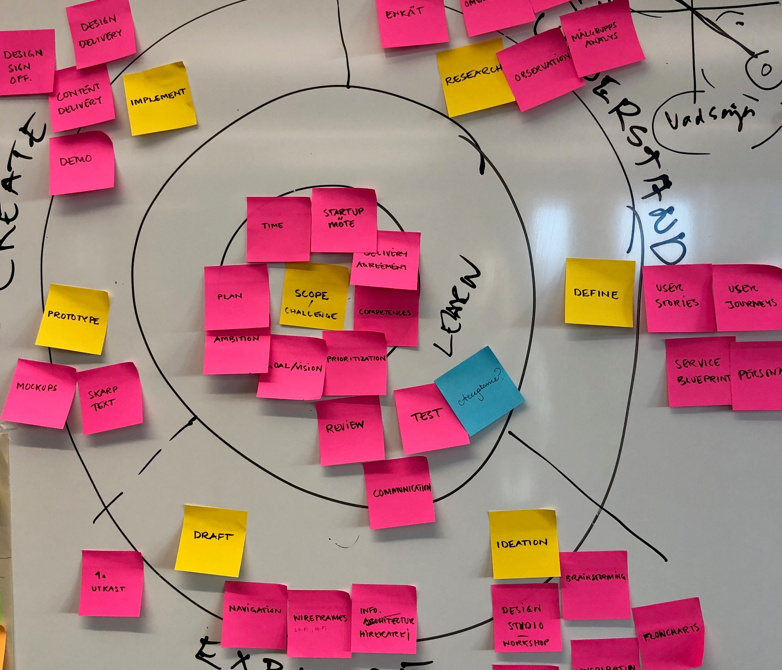 DESIGN
DELIVERY
DESIGN
SIGN
OFF.
CONTENT
DELIVERY
IMPLEMENT
DEMO
CREATE
ENKÄT
RESEARCH
OBSERVATION
MÅLGRUPPS
ANALYS
DERSTAND
TIME
STARTUP
MÖTE
DELIVERY
AGREEMENT
PLAN
SCOPE
/
CHALLENGE
COMPETENCES
AMBITION
OAL/VISION
PRIORITIZATION
LEARN
REVIEW
TEST
Acceptance?
COMMUNICATION
DEFINE
USER
STORIES
USER
JOURNEYS
SERVICE
BLUEPRINT
PERSONA
PROTOTYPE
MOCKUPS
SKARP
TEXT
DRAFT
1a
UTKAST
NAVIGATION
WIREFRAMES
INFO.
ARCHITECTUR
HIERKARKI
IDEATION
BRAINSTORMING
DESIGN
STUDIO
WORKSHOP
FLOWCHARTS